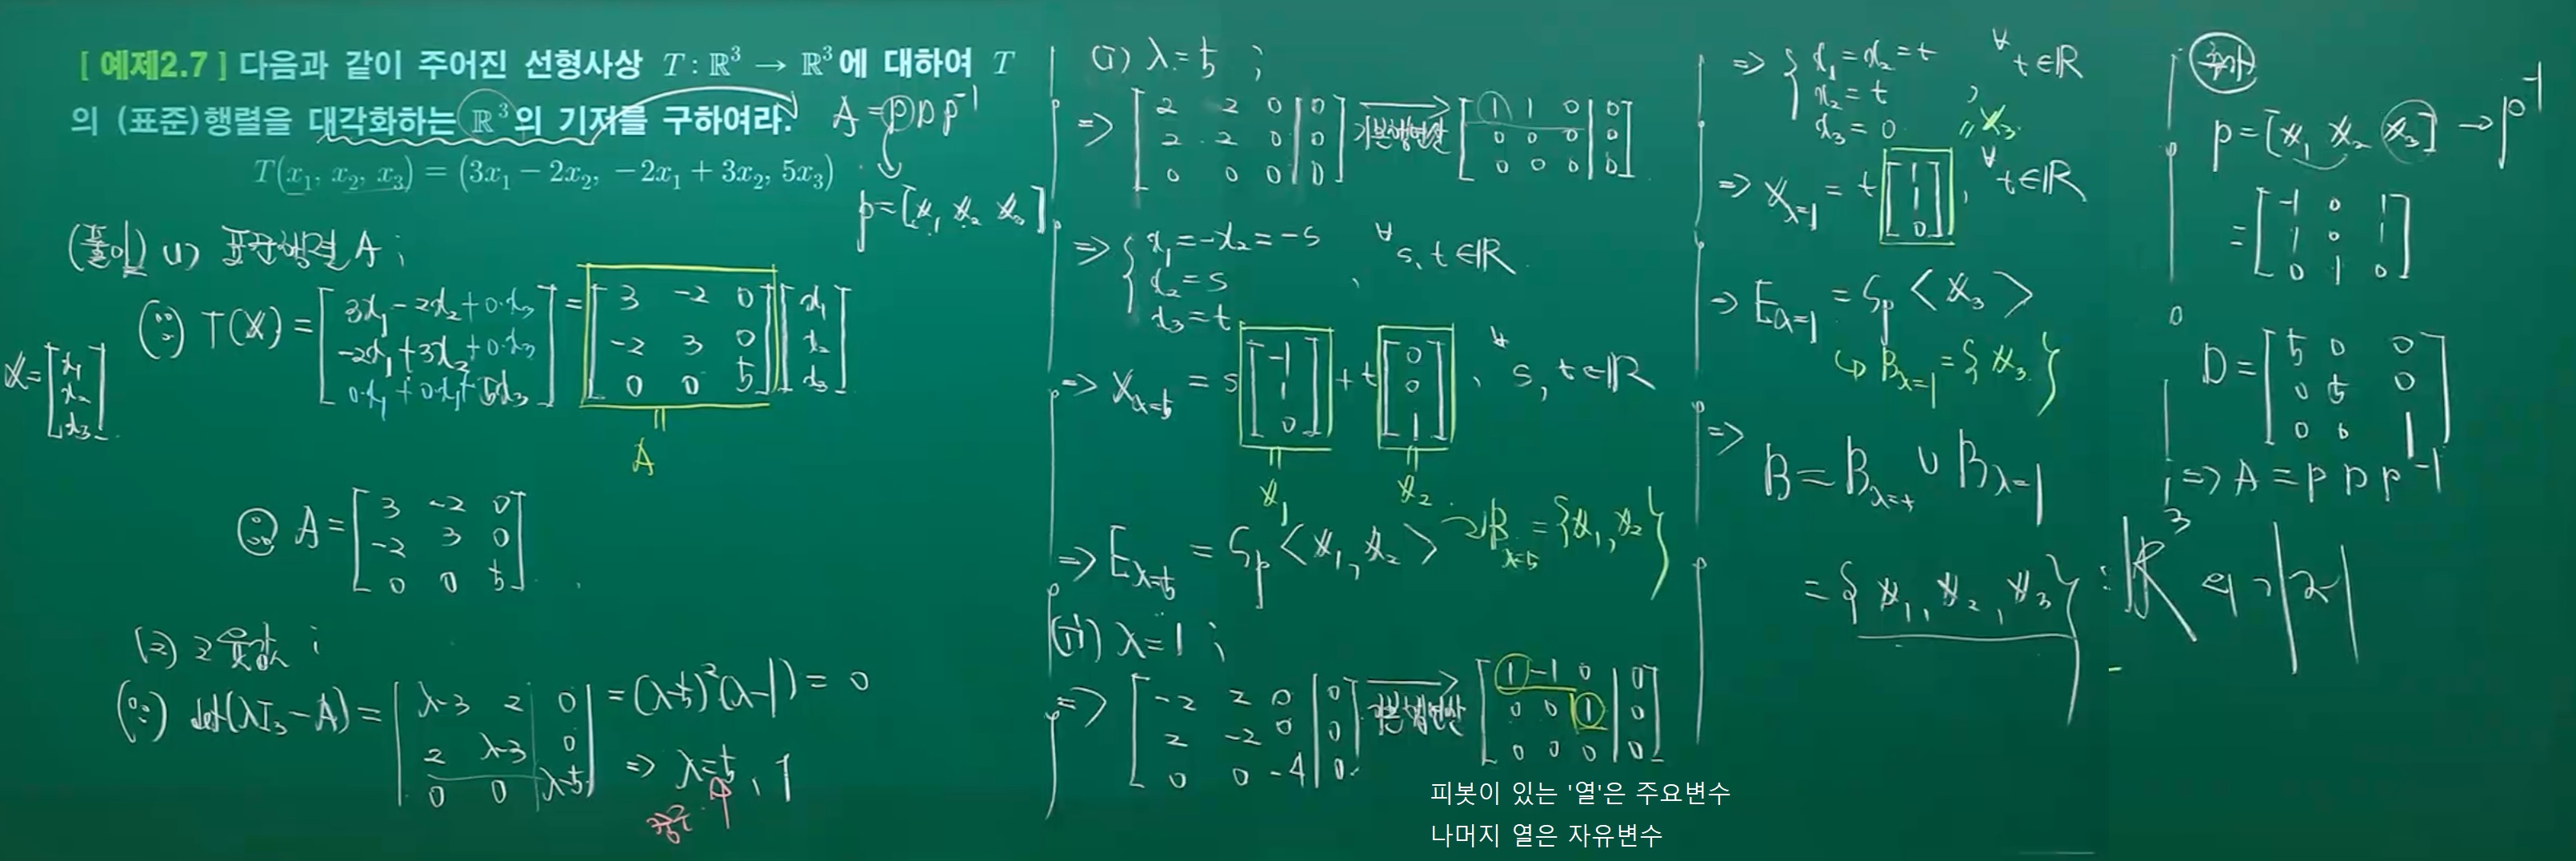 [ 예제2.7 ] 다음과 같이 주어진 선형사상 T : ℝ³ → ℝ³에 대하여 T
의 (표준)행렬을 대각화하는 ℝ³의 기저를 구하여라.
T(x₁, x₂, x₃) = (3x₁ − 2x₂, −2x₁ + 3x₂, 5x₃)
A = P D P⁻¹
P = [x₁ x₂ x₃]
(풀이) (1) 표준행렬 A ;
(∵) T(x) = [3x₁ − 2x₂ + 0·x₃
−2x₁ + 3x₂ + 0·x₃
0·x₁ + 0·x₁ + 5x₃] = [3 −2 0
−2 3 0
0 0 5] [x₁
x₂
x₃]
x = [x₁
x₂
x₃]
A
∴ A = [3 −2 0
−2 3 0
0 0 5]
(2) 고윳값 ;
(∵) det(λI₃ − A) = |λ−3 2 0
2 λ−3 0
0 0 λ−5| = (λ−5)²(λ−1) = 0
⇒ λ = 5, 1
중근
(i) λ = 5 ;
⇒ [2 2 0 | 0
2 2 0 | 0
0 0 0 | 0] → 기본행연산 [1 1 0 | 0
0 0 0 | 0
0 0 0 | 0]
⇒ { x₁ = −x₂ = −s
x₂ = s , ∀s, t ∈ ℝ
x₃ = t
⇒ x_λ=5 = s [−1
1
0] + t [0
0
1] , ∀s, t ∈ ℝ
x₁ x₂
⇒ E_λ=5 = Sp < x₁, x₂ > → B_λ=5 = {x₁, x₂}
(ii) λ = 1 ;
⇒ [−2 2 0 | 0
2 −2 0 | 0
0 0 −4 | 0] → 기본행연산 [1 −1 0 | 0
0 0 1 | 0
0 0 0 | 0]
피봇이 있는 '열'은 주요변수
나머지 열은 자유변수
⇒ { x₁ = x₂ = t ∀t ∈ ℝ
x₂ = t ,
x₃ = 0 = x₃
⇒ x_λ=1 = t [1
1
0] , ∀t ∈ ℝ
⇒ E_λ=1 = Sp < x₃ >
↪ B_λ=1 = {x₃}
⇒ B = B_λ=5 ∪ B_λ=1
= {x₁, x₂, x₃} : ℝ³의 기저
추가
P = [x₁ x₂ x₃] → P⁻¹
= [−1 0 1
1 0 1
0 1 0]
D = [5 0 0
0 5 0
0 0 1]
⇒ A = P D P⁻¹